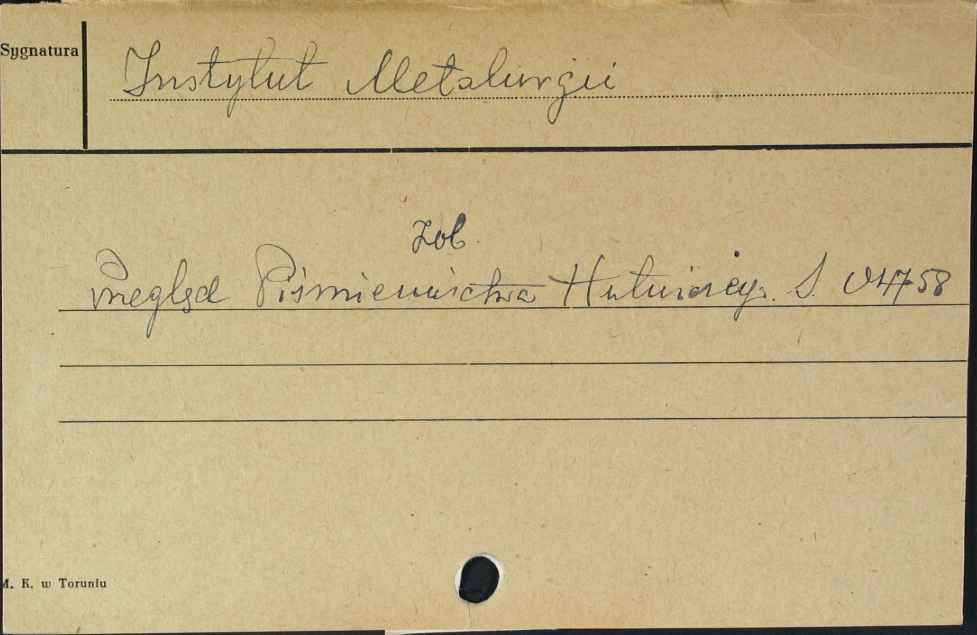 Sygnatura
Instytut Metalurgii
Zob.
Przegląd Piśmiennictwa Hutniczego. S. 04758
M. K. w Toruniu